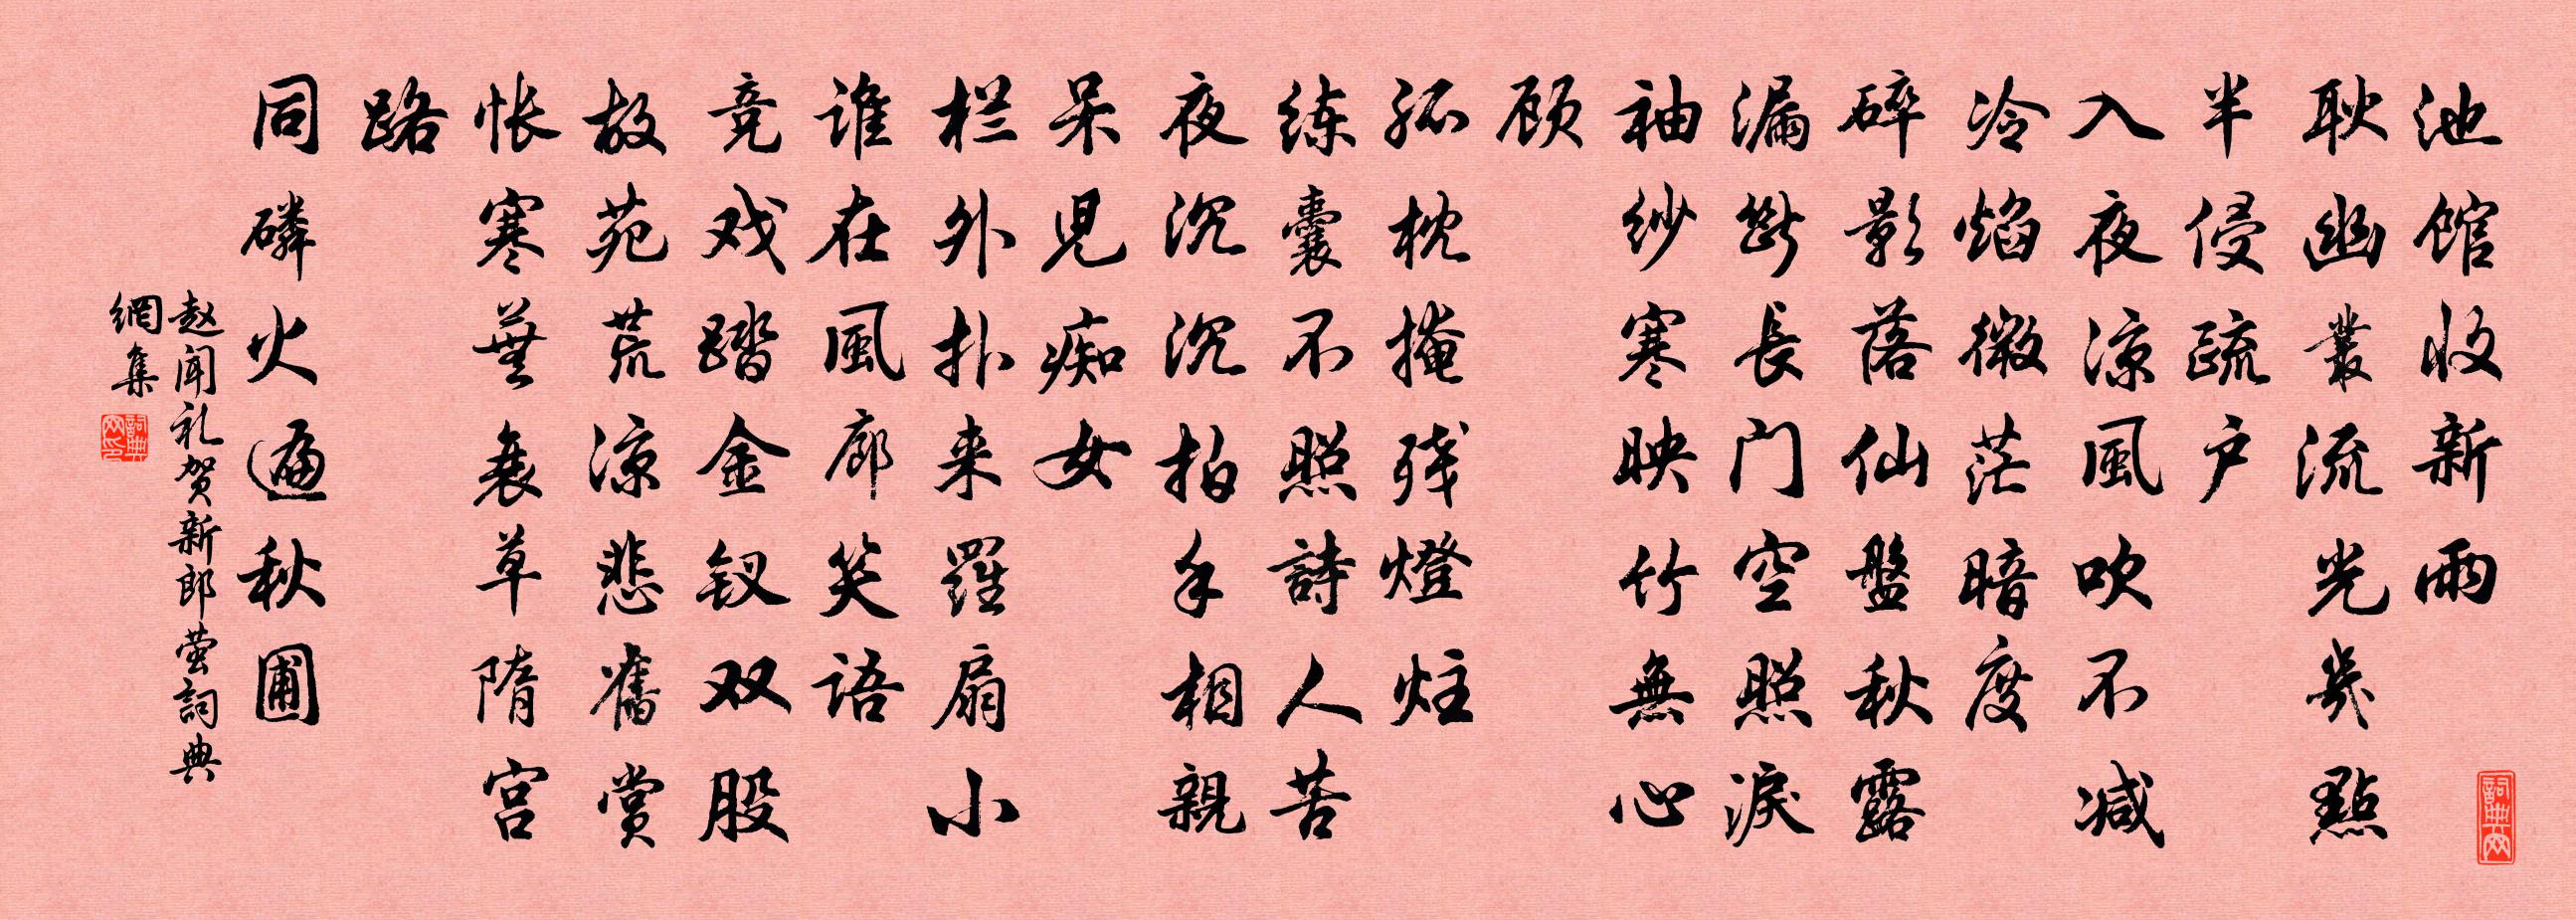 池馆收新雨
耿幽叢流光幾點
半侵疏户
入夜凉風吹不减
冷焰微茫暗度
碎影落仙盤秋露
漏斷長门空照淚
袖纱寒映竹無心
顾
孤枕掩残燈炷
练囊不照詩人苦
夜沉沉拍手相親
呆児痴女
栏外扑来羅扇小
谁在風廊笑语
竞戏踏金钗双股
故苑荒凉悲舊赏
怅寒蕪衰草隋宫
路
同磷火遍秋圃
赵闻礼贺新郎萤詞典
網集
詞典网印
詞典网